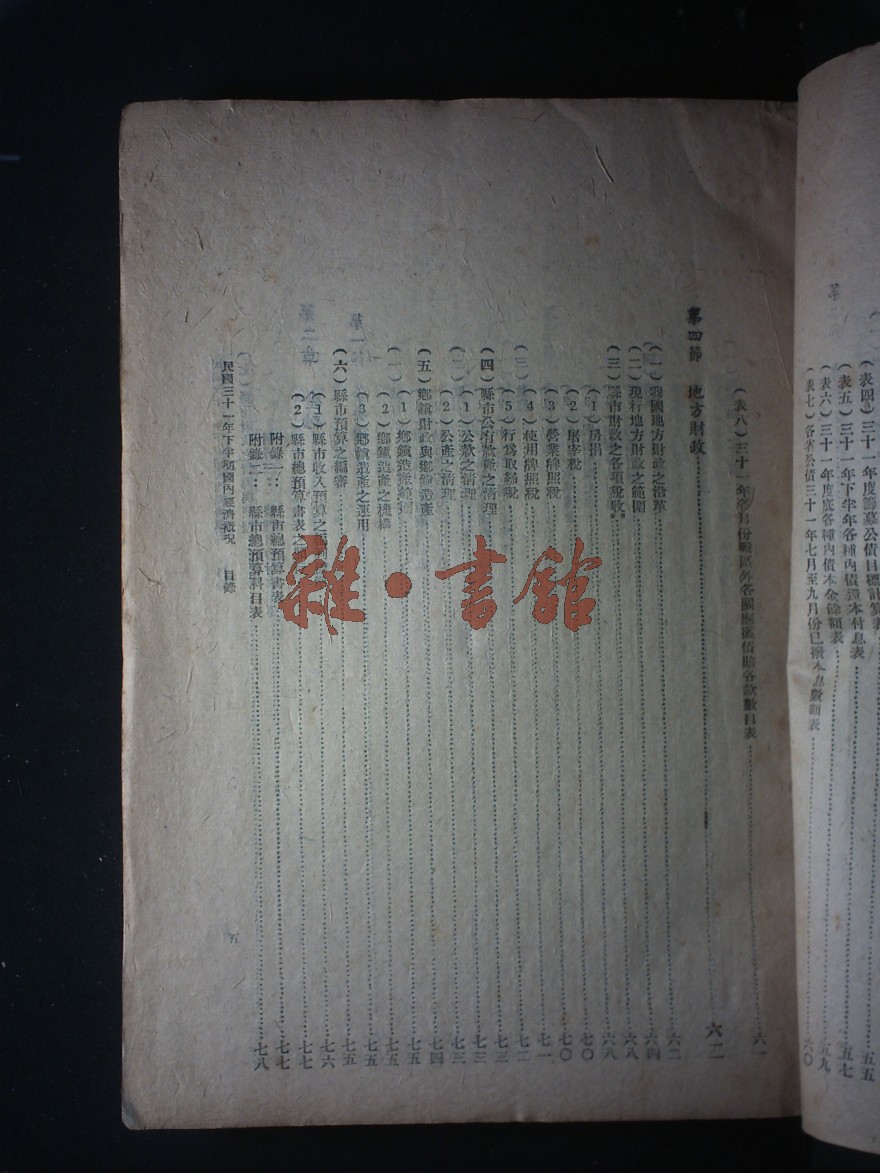 （表四）三十一年度籌募公債目標計算表
（表五）三十一年下半年各種內債還本付息表……五五
（表六）三十一年度底各種內債本金餘額表……五七
（表七）各省公債三十一年七月至九月份已撥本息數額表……五九
六〇
（表八）三十一年各月份戰區外各關應攤債賠各款數目表……六一
第四節　地方財政……六二
（一）我國地方財政之沿革……六二
（二）現行地方財政之範圍……六四
（三）縣市財政之各項稅收……六八
（1）房捐……六八
（2）屠宰稅……七〇
（3）營業牌照稅……七〇
（4）使用牌照稅……七一
（5）行為取締稅……七二
（四）縣市公有款產之清理……七三
（1）公款之清理……七三
（2）公產之清理……七三
（五）鄉鎮財政與鄉鎮造產……七四
（1）鄉鎮造產範圍……七五
（2）鄉鎮造產之機構……七五
（3）鄉鎮造產之運用……七五
（六）縣市預算之編審……七五
（1）縣市收入預算之……七六
（2）縣市總預算書表之……七七
附錄一：縣市總預算書表……七七
附錄二：縣市總預算科目表……七八
民國三十一年下半期國內經濟概況　目錄
五
雜·書館